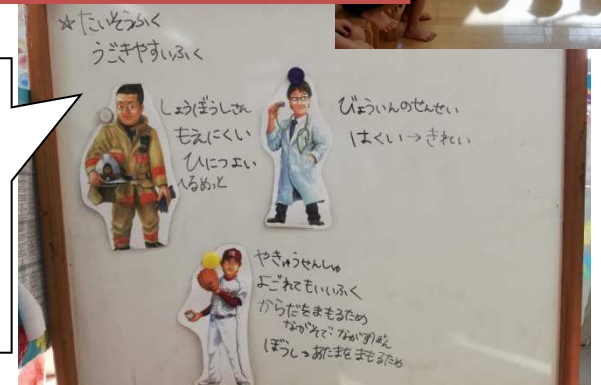 ☆たいそうふく
うごきやすいふく
しょうぼうしさん
もえにくい
ひにつよい
へるめっと
びょういんのせんせい
はくい→きれい
やきゅうせんしゅ
よごれてもいいふく
からだをまもるため
ながそで・ながずぼん
ぼうし→あたまをまもるため